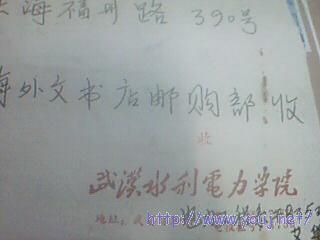 上海福州路390号
海外文书店邮购部收
收
武漢水利電力学院
地址:武
http://www.youj.net/